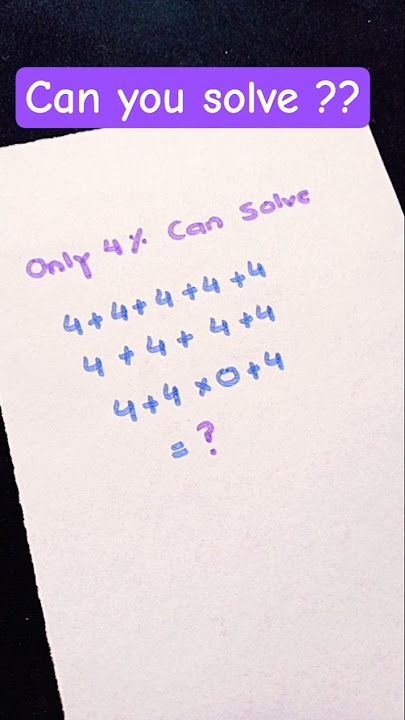 Can you solve ??
Only 4% Can Solve
4+4+4+4+4
4+4+4+4
4+4×0+4
=?